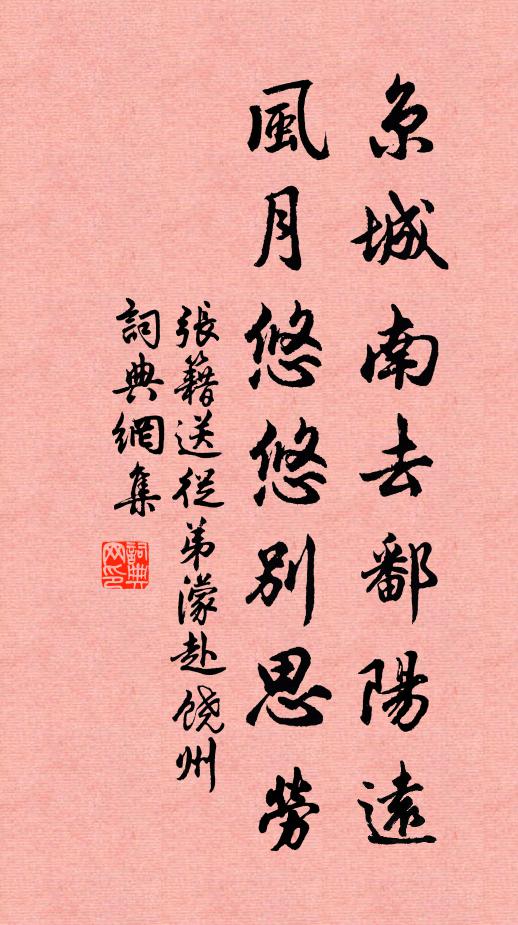 京城南去鄱陽遠
風月悠悠別思勞
張籍送從弟濛赴饒州
詞典網集
詞典網印